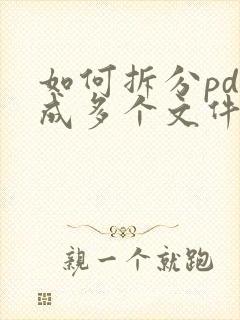 如何拆分pd
成多个文件
親一个就跑